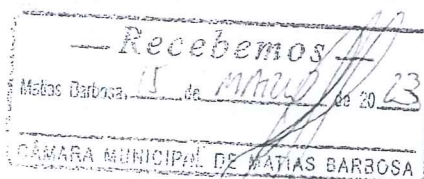 Recebemos
Matias Barbosa, 15 de março de 2023
CÂMARA MUNICIPAL DE MATIAS BARBOSA